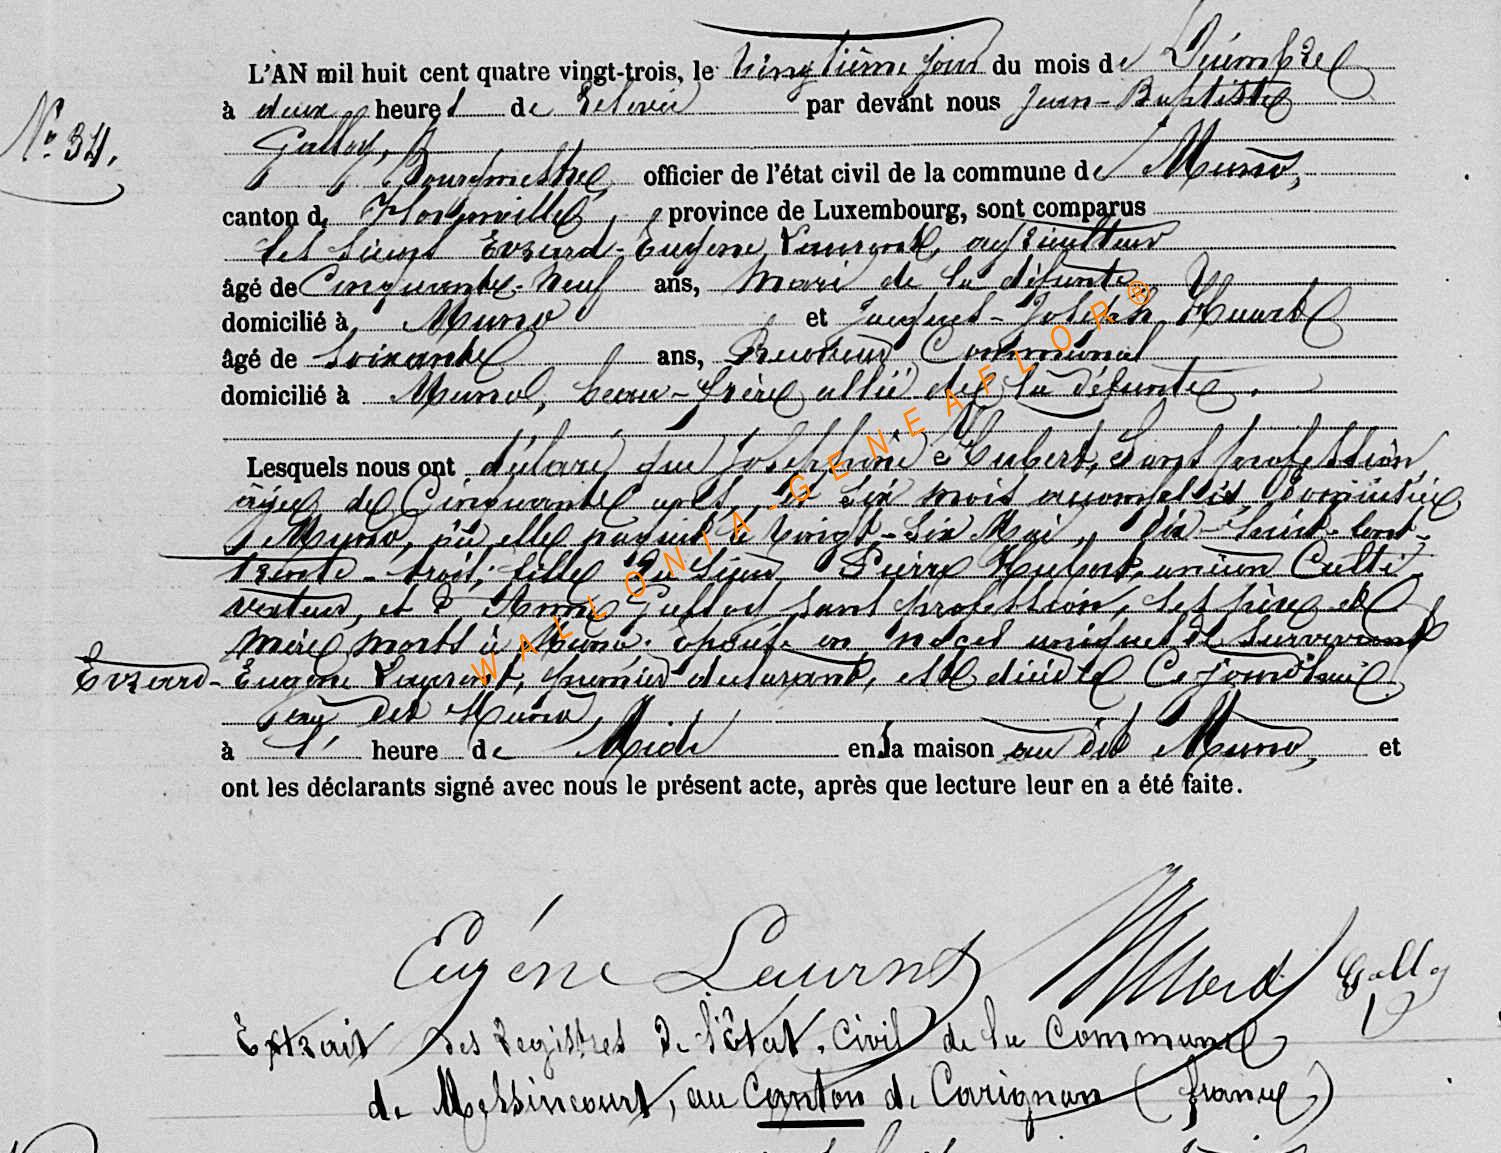 L'AN mil huit cent quatre vingt-trois, le vingtième jour du mois de Décembre
à deux heures de relevée par devant nous Jean-Baptiste
N° 34.
Galloy, Bourgmestre, officier de l'état civil de la commune de Muno,
canton de Florenville, province de Luxembourg, sont comparus
les sieurs Evrard-Eugène Laurent, agriculteur
âgé de Cinquante-Neuf ans, mari de la défunte
domicilié à Muno et Jacques-Joseph Huart
âgé de soixante ans, Receveur Communal
domicilié à Muno, beau-frère allié de la défunte.
Lesquels nous ont déclaré que Joséphine Hubert, sans profession,
âgée de Cinquante ans, et six mois accomplis domiciliée
à Muno, où elle naquit le vingt-six Mai, dix-huit-cent-
trente-trois, fille du sieur Pierre Hubert, ancien Culti
vateur, et d'Anne Galloy sans profession, ses père et
mère morts à Muno. épouse en noces uniques de survivant
Evrard-Eugène Laurent, premier déclarant, est décédée Cejourd'hui
au dit Muno,
à l' heure de Midi en la maison au dit Muno, et
ont les déclarants signé avec nous le présent acte, après que lecture leur en a été faite.
Eugéne Laurent Huard Galloy
Extrait des Registres de l'Etat, Civil de la Commune
de Messincourt, au Canton de Carignan (france)
WALLONIA-GENEAFLOR®